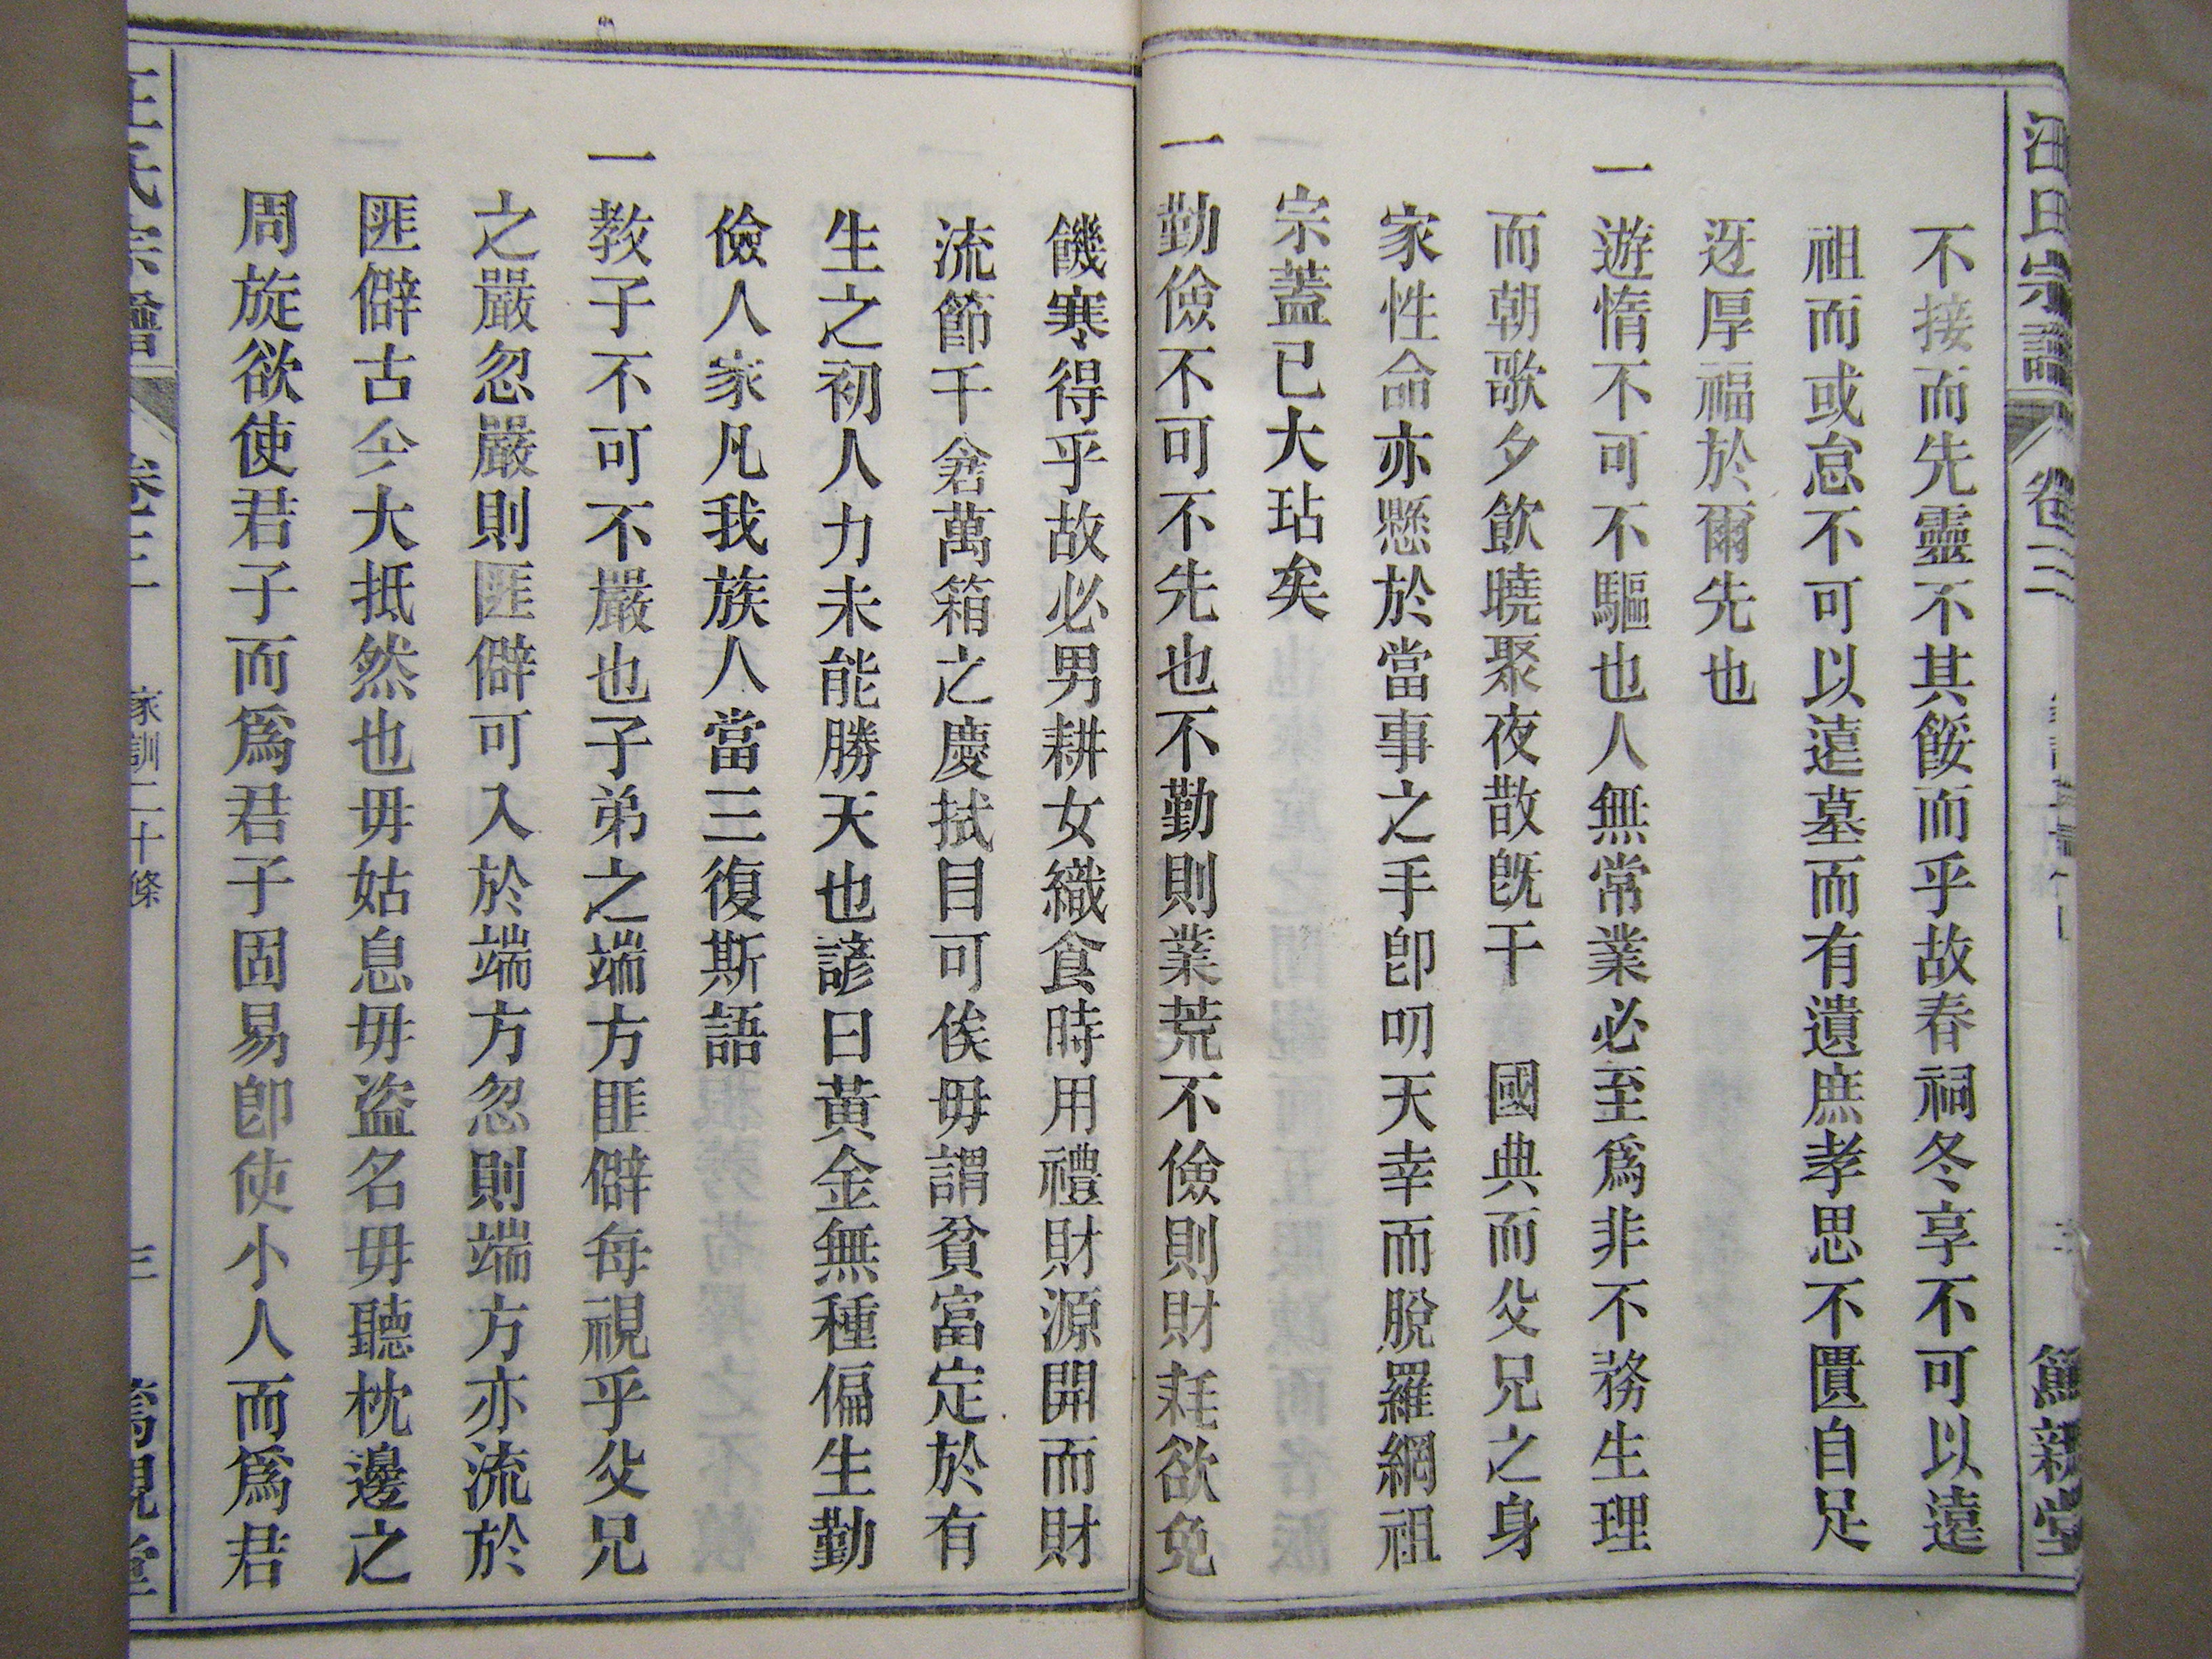 汪氏宗譜 卷三 篤親堂
不接而先靈不其餒而乎故春祠冬享不可以遠
祖而或怠不可以遠墓而有遺庶孝思不匱自足
迓厚福於爾先也
一遊惰不可不驅也人無常業必至爲非不務生理
而朝歌夕飲曉聚夜散旣干 國典而父兄之身
家性命亦懸於當事之手卽叨天幸而脫羅網祖
宗蓋已大玷矣
一勤儉不可不先也不勤則業荒不儉則財耗欲免
饑寒得乎故必男耕女織食時用禮財源開而財
流節千倉萬箱之慶拭目可俟毋謂貧富定於有
生之初人力未能勝天也諺曰黃金無種偏生勤
儉人家凡我族人當三復斯語
一敎子不可不嚴也子弟之端方匪僻每視乎父兄
之嚴忽嚴則匪僻可入於端方忽則端方亦流於
匪僻古今大抵然也毋姑息毋盜名毋聽枕邊之
周旋欲使君子而爲君子固易卽使小人而爲君
汪氏宗譜 卷三 家訓二十條 三 篤親堂